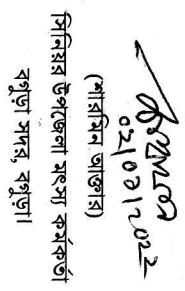 ০১/০৩/২০২২
(শারমিন আক্তার)
সিনিয়র উপজেলা মৎস্য কর্মকর্তা
বগুড়া সদর, বগুড়া।